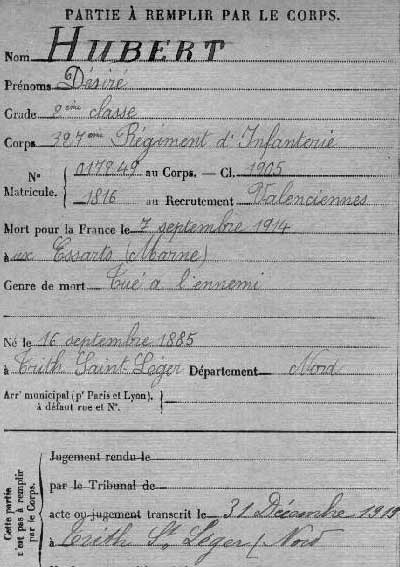 PARTIE À REMPLIR PAR LE CORPS.
Nom HUBERT
Prénoms Désiré
Grade 2ème classe
Corps 327ème Régiment d'Infanterie
N° Matricule. { 017249 au Corps. — Cl. 1905
1816 au Recrutement Valenciennes
Mort pour la France le 7 septembre 1914
à ux Essarts (Marne)
Genre de mort Tué à l'ennemi
Né le 16 septembre 1885
à Trith Saint Léger Département Nord
Arrt municipal (pr Paris et Lyon), }
à défaut rue et N°.
Cette partie n'est pas à remplir par le Corps.
Jugement rendu le
par le Tribunal de
acte ou jugement transcrit le 31 Décembre 1919
à Trith St Léger (Nord